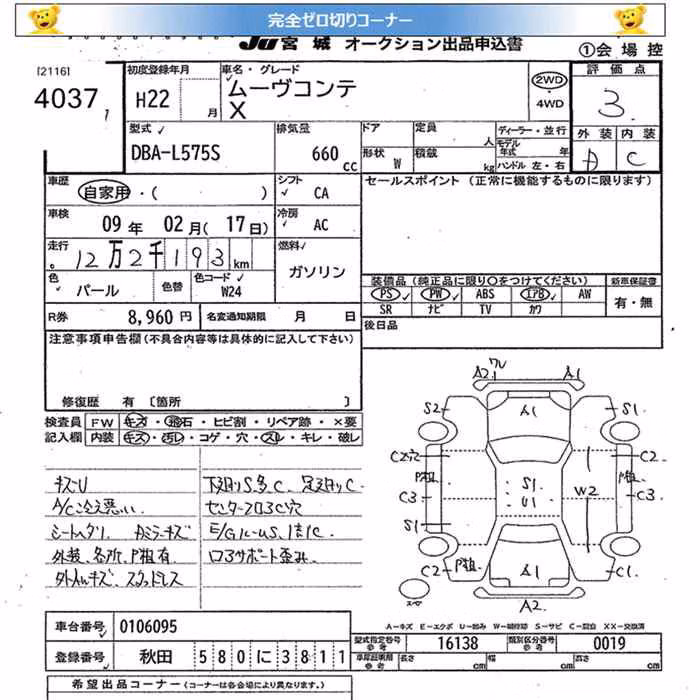 完全ゼロ切りコーナー
JU 宮城 オークション出品申込書
①会場控
[2116]
4037
初度登録年月
H22 月
車名・グレード
ムーヴコンテ
X
2WD
・
4WD
評価点
3
外装 内装
A C
型式
DBA-L575S
排気量
660 cc
ドア
形状 W
定員 人
積載 kg
ディーラー・並行
モデル年式 年
ハンドル 左・右
車歴
自家用・( )
シフト
CA
セールスポイント (正常に機能するものに限ります)
車検
09 年 02 月( 17 日)
冷房
AC
走行
12万2千193km
燃料
ガソリン
色
パール
色替
色コード
W24
装備品(純正品に限り○をつけてください)
新車保証書
PS PW ABS エアB AW
SR ナビ TV カワ
有・無
R券 8,960 円
名変通知期限 月 日
後日品
注意事項申告欄(不具合内容等は具体的に記入して下さい)
修復歴 有 〔箇所 〕
検査員記入欄
FW キズ・飛石・ヒビ割・リペア跡・×要
内装 キズ・汚レ・コゲ・穴・スレ・キレ・破レ
キズU
A/C冷え悪い
シートヘタリ Aミラーキズ
外装、各所、P粗有
外人キズ スタッドレス
下廻りS多C、足廻りC
センターフロアC穴
E/GルームS、1部C
ロアサポート歪み
ワレ
A2 A1
S2 A1 S1
C2穴 C2
P粗 P粗
C3 S1 U1 W2 C3
S1
C2 P粗 A1 C1
スペア
A2
A-キズ E-エクボ U-凹み W-補修跡 S-サビ C-腐食 XX-交換済
車台番号 0106095
登録番号 秋田 580に3811
型式指定番号 16138
類別区分番号 0019
車庫証明用 長さ cm 幅 cm 高さ cm
希望出品コーナー (コーナーは各会場により異なります。)